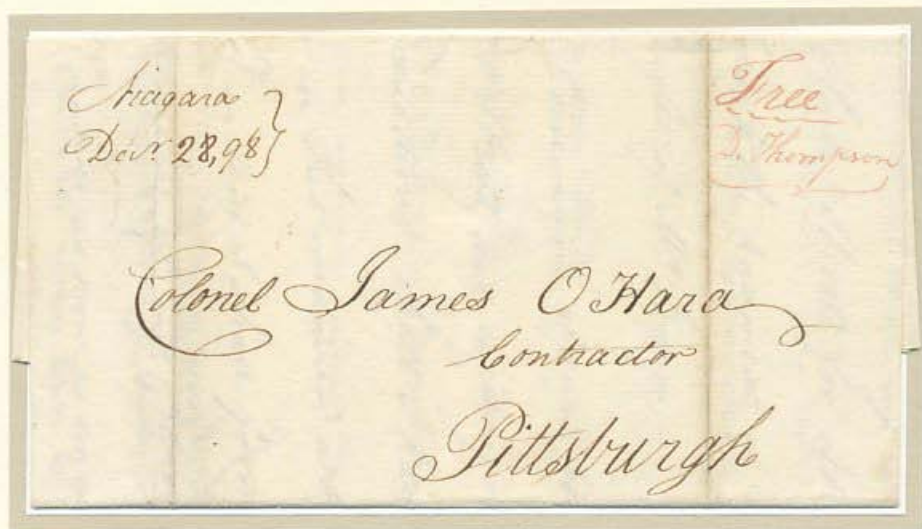 Niagara }
Decr. 28, 98 }
Free
D. Thompson
Colonel James O Hara
Contractor
Pittsburgh